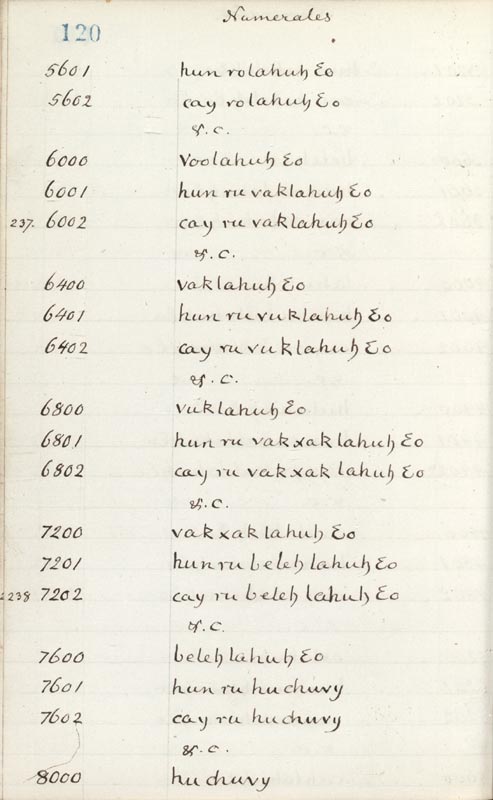 Numerales
120
5601 hun rolahuɧ Ɛo
5602 cay rolahuɧ Ɛo
&.c.
6000 voolahuɧ Ɛo
6001 hun ru vaklahuɧ Ɛo
237. 6002 cay ru vaklahuɧ Ɛo
&.c.
6400 vaklahuɧ Ɛo
6401 hun ru vuklahuɧ Ɛo
6402 cay ru vuklahuɧ Ɛo
&.c.
6800 vuklahuɧ Ɛo
6801 hun ru vakxaklahuɧ Ɛo
6802 cay ru vakxaklahuɧ Ɛo
&.c.
7200 vakxaklahuɧ Ɛo
7201 hun ru beleɧ lahuɧ Ɛo
238 7202 cay ru beleɧ lahuɧ Ɛo
&.c.
7600 beleɧ lahuɧ Ɛo
7601 hun ru huchuvy
7602 cay ru huchuvy
&.c.
8000 huchuvy